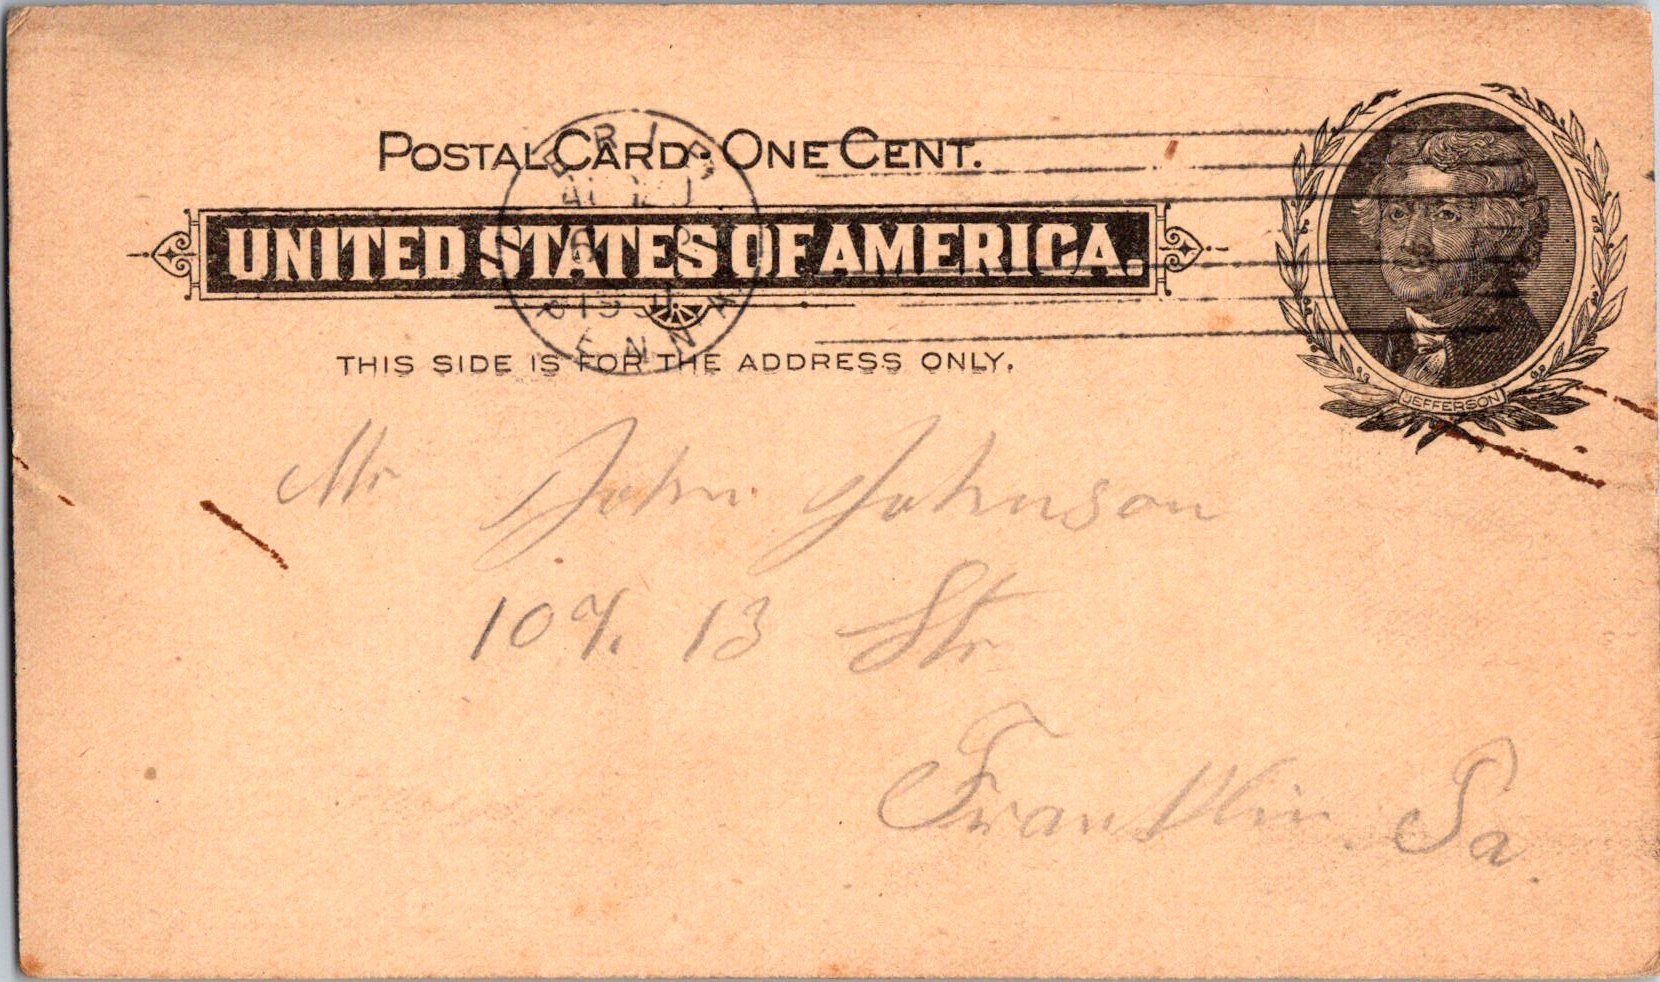 POSTAL CARD · ONE CENT.
UNITED STATES OF AMERICA.
THIS SIDE IS FOR THE ADDRESS ONLY.
JEFFERSON
ERIE
PENN'A.
Mr John Johnson
107. 13 Str
Franklin Pa